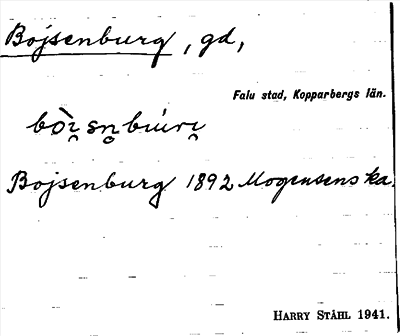 Bojsenburg, gd,
Falu stad, Kopparbergs län.
bòi̯sn̥búri̯
Bojsenburg 1892 Mogensens ka.
HARRY STÅHL 1941.